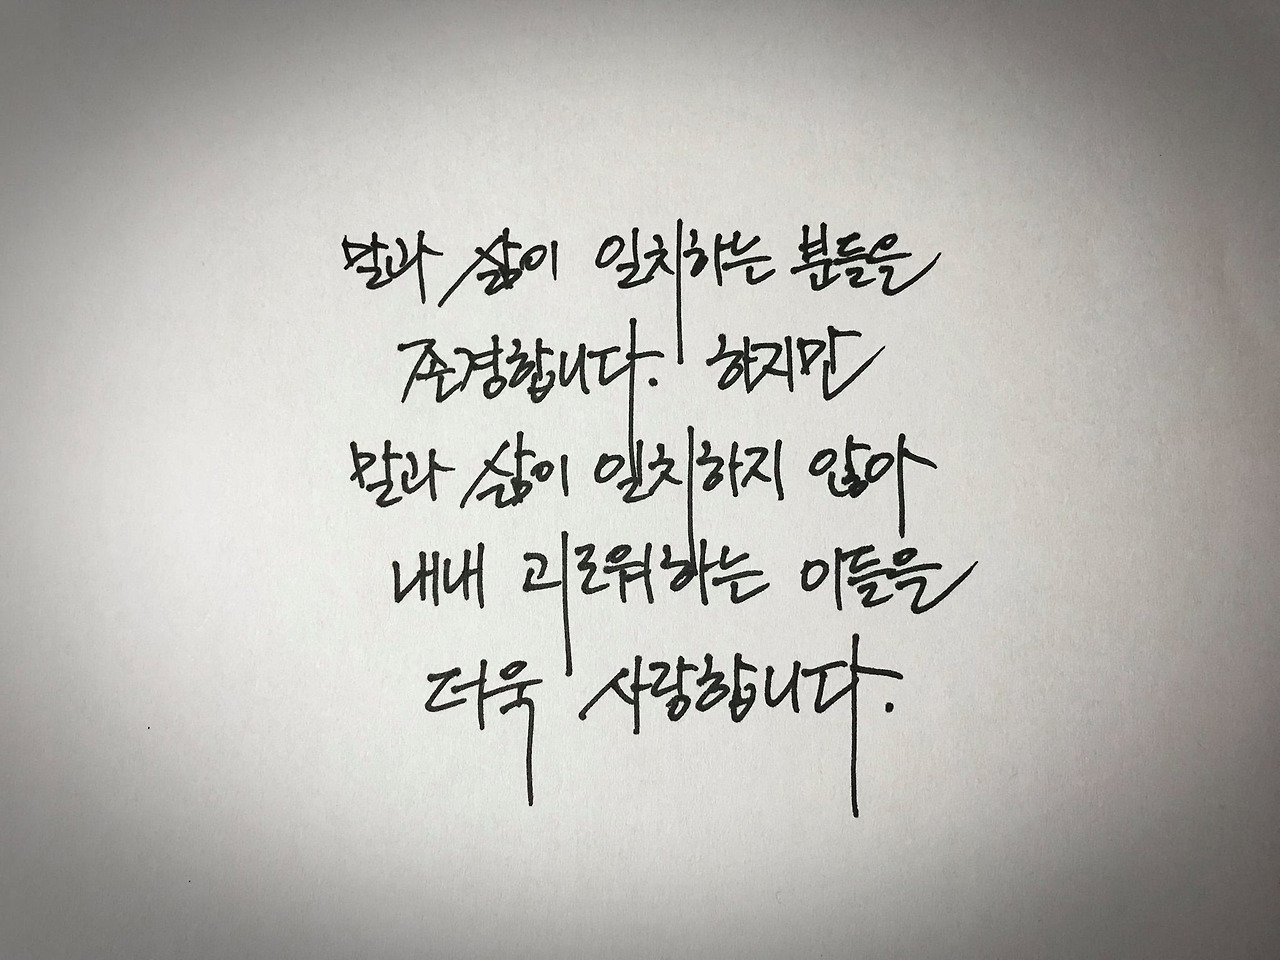 말과 삶이 일치하는 분들을
존경합니다. 하지만
말과 삶이 일치하지 않아
내내 괴로워하는 이들을
더욱 사랑합니다.